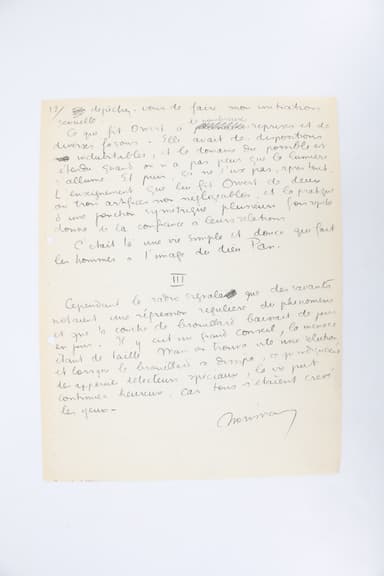 19/ dépêchez-vous de faire mon initiation
sexuelle
Ce que fit Orvert à de nombreuses reprises et de
diverses façons. Elle avait des dispositions
indubitables, et le domaine du possible est
étendu quand on n'a pas peur que la lumière
s'allume. Et puis, ça n'use pas, après tout.
L'enseignement que lui fit Orvert de deux
ou trois artifices non négligeables, et la pratique
d'une jonction symétrique plusieurs fois répétée
donna de la confiance à leurs relations.
C'était là une vie simple et douce qui fait
les hommes à l'image du dieu Pan.
III
Cependant la radio signala que des savants
notaient une régression régulière du phénomène
et que la couche de brouillard baissait de jour
en jour. Il y eut un grand conseil, la menace
étant de taille. Mais on trouva vite une solution
et lorsque le brouillard se dissipa,
la vie put
continuer heureuse, car tous s'étaient crevé
les yeux.